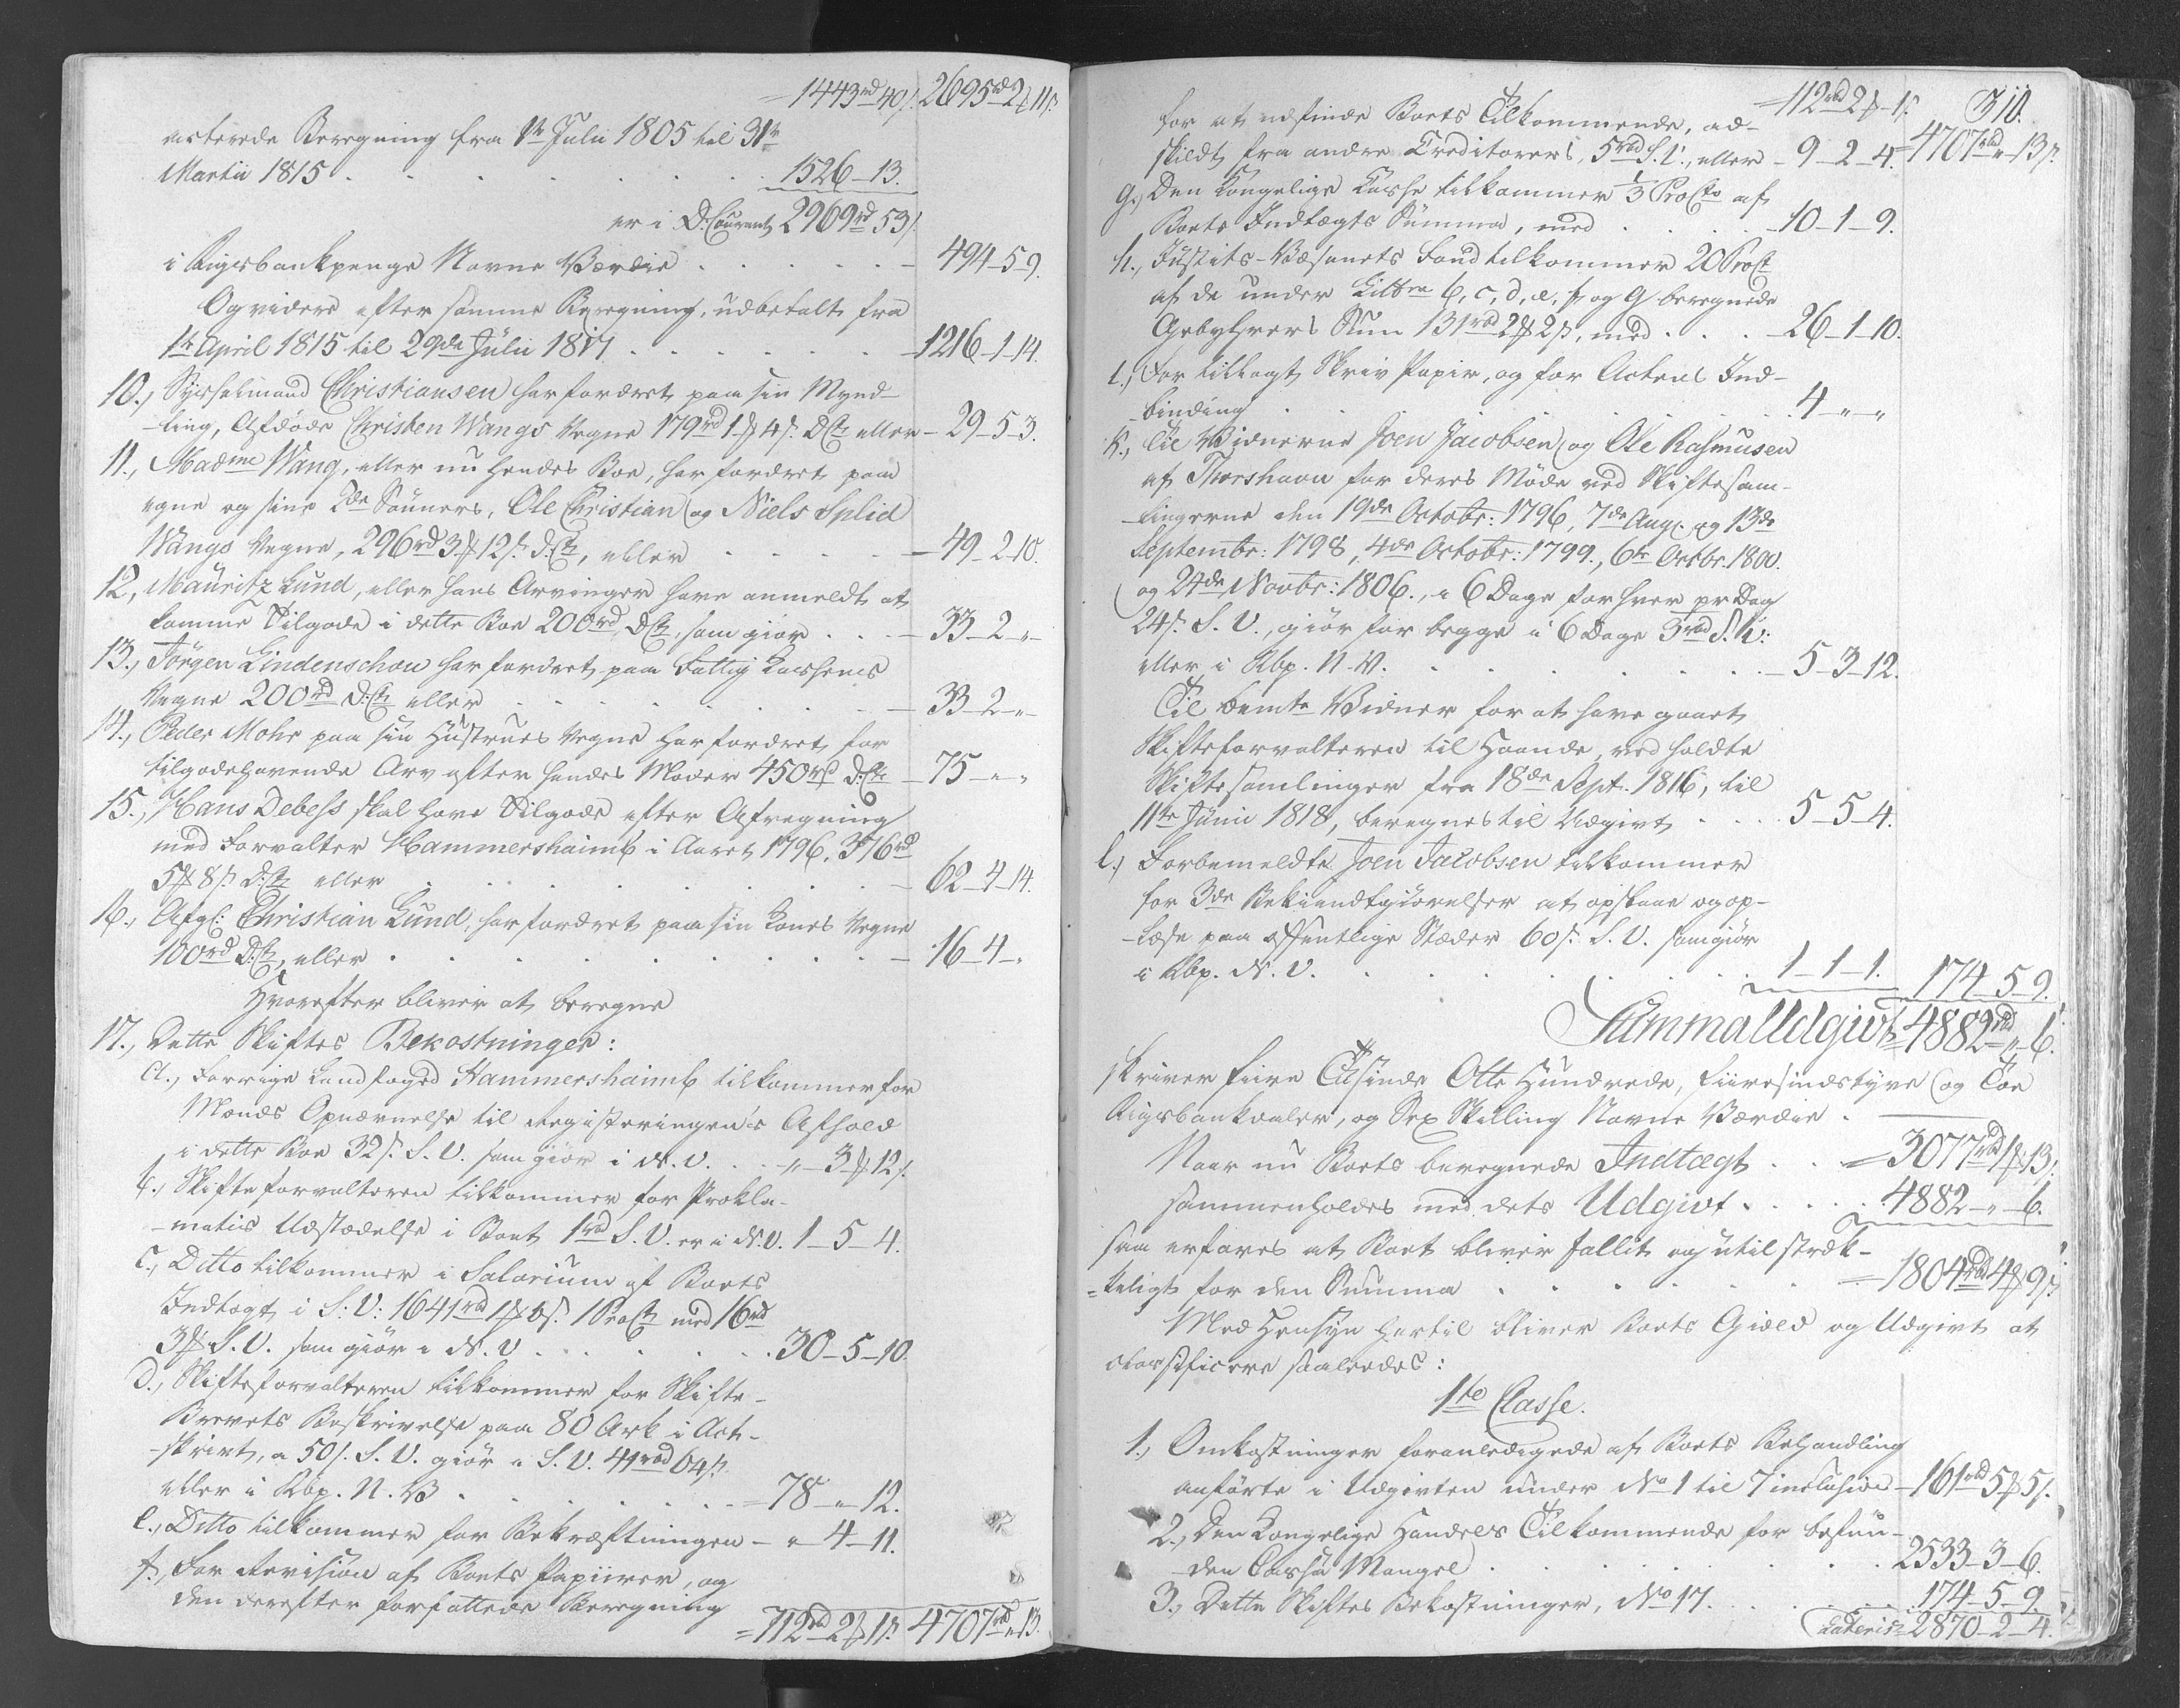 =1443rd 40/. 2695rd 2 ₰ 11 s.
acterede Beregning fra 1te Julii 1805 til 31te
Martii 1815 . . . . . . . . 1526-13.
er i D: Courant 2969rd 53/.
i Rigsbankpenge Navne Værdie . . . . . - 494-5-9.
Og videre efter samme Beregning, udbetalt fra
1te April 1815 til 29de Julii 1817 . . . . . . -1216-1-14.
10., Sysselmand Christiansen har fordret paa sin Mynd-
-ling, Afdøde Christen Wangs Vegne 179rd 1 ₰ 4 s. D.Ct. eller - 29-5-3.
11., Madme Wang, eller nu hendes Boe, har fordret paa
egne og sine 2de Sønners, Ole Christian og Niels Splid
Wangs Vegne, 296rd 3 ₰ 12 s. D.Ct., eller . . . . - 49-2-10.
12., Mauritz Lund, eller hans Arvinger have anmeldt at
komme Tilgode i dette Boe 200rd D.Ct., som giør . . . - 33-2-"-
13., Jörgen Lindenschou har fordret paa Fattig Cassens
Vegne 200rd D.Ct. eller . . . . . . . - 33-2-"-
14., Peder Mohr paa sin Hustrues Vegne har fordret, for
tilgodehavende Arv efter hendes Moder 450rd D.Ct. - 75-"-"
15., Hans Debess skal have Tilgode efter Afregning
med Forvalter Hammershaimb i Aaret 1796, 376rd
5 ₰ 8 s. D.Ct. eller . . . . . . . . . - 62-4-14.
16., Afgl: Christian Lund, har fordret paa sin Kones Vegne
100rd D.Ct., eller . . . . . . . . . . - 16-4-"
Hvorefter bliver at beregne
17., Dette Skiftes Bekostninger:
a., Forrige Landfoged Hammershaimb tilkommer for
Mænds Opnævnelse til Registeringens Afhold
i dette Boe 32 s. S. V. som giør i N. V. . . -"-3 ₰ 12 s.
b., Skifteforvalteren tilkommer for Prokla-
-matis Udstædelse i Boet 1rbd S. V. er i N. V. 1-5-4.
c., Ditto tilkommer i Salarium af Boets
Indtægt i S: V: 1641rbd 1 ₰ 6 s. 1 ProCt. med 16rd
3 ₰ S. V. som giør i N. V . . . . . . . 30-5-10.
d., Skifteforvalteren tilkommer for Skifte-
Brevets Beskrivelse paa 80 Ark i Act-
-skrivt, a 50/. S. V. giør i S. V. 41rbd 64 s.
eller i Rbp. N. V . . . . . . . = 78-"-12.
e., Ditto tilkommer for Bekræftningen - "-4-11.
f., For Revision af Boets Papiirer, og
den derefter forfattede Beregning
=112rbd 2 ₰ 1 s. 4707rbd " 13.
=112rbd 2 ₰-1 s. 310.
for at udfinde Boets Tilkommende, ad-
skildt fra andre Creditorers, 5rbd S. V., eller - 9-2-4. =4707rbd "-13 s.
g., Den Kongelige Casse tilkommer 1/3 ProCto af
Boets Indtægts Summa, med . . . . -10-1-9.
h., Justits-Væsenets Fond tilkommer 20 ProCt
af de under Littra b, c, d, e, f, og g beregnede
Gebyhrers Sum 131rbd 2 ₰ 2 s., med . . . -26-1-10.
i., For tillagt Skriv Papir, og for Actens Ind-
-binding . . . . . . . . . 4-"-"
k., Til Vidnerne Joen Jacobsen og Ole Rasmusen
af Thorshavn for deres Møde ved Skiftesam-
-lingerne den 19de Octobr: 1796, 7de Aug. og 13de
Septembr: 1798, 4de Octobr: 1799., 6te Octbr. 1800.
og 24de Novbr: 1806., i 6 Dage for hver pr Dag
24 s. S. V., giør for begge i 6 Dage 3rbd S. V:
eller i Rbp. N. V. . . . . . . . . . - 5-3-12.
Til bemte Vidner for at have gaaet
Skifteforvalteren til Haande, ved holdte
Skiftesamlinger fra 18de Sept. 1816, til
11te Junii 1818, beregnes til Udgivt . . . . 5-5-4.
l., Forbemeldte Joen Jacobsen tilkommer
for 3de Bekiendtgiørelser at opslaae og op-
-læse paa offentlige Stæder 60 s. S. V. som giør
i Rbp. N. V. . . . . . . . . 1-1-1. 174-5-9.
Summa Udgivt =4882rbd "-6.
skriver fiire Tusinde Otte Hundrede, fiiresindstyve og Toe
Rigsbankdaler, og Sex Skilling Navne Værdie.
Naar nu Boets beregnede Indtægt . . =3077rbd 1 ₰ 13 s.
sammenholdes med dets Udgivt . . . . . 4882-"-6.
saa erfares at Boet bliver fallit og utilstræk-
=keligt for den Summa . . . . . . =1804rbd 4 ₰ 9 s.
Med Hensyn hertil bliver Boets Gield og Udgivt at
classificere saaledes:
1te Classe.
1., Omkostninger foranledigede af Boets Behandling
anførte i Udgivten under No 1 til 7 inclusive - 161rbd 5 ₰ 5 s.
2., Den Kongelige Handels Tilkommende for befun-
den Cassa Mangel . . . . . . . . 2533-3-6.
3., Dette Skiftes Bekostninger, No 17. . . . . . 174-5-9.
Lateris = 2870-2-4.